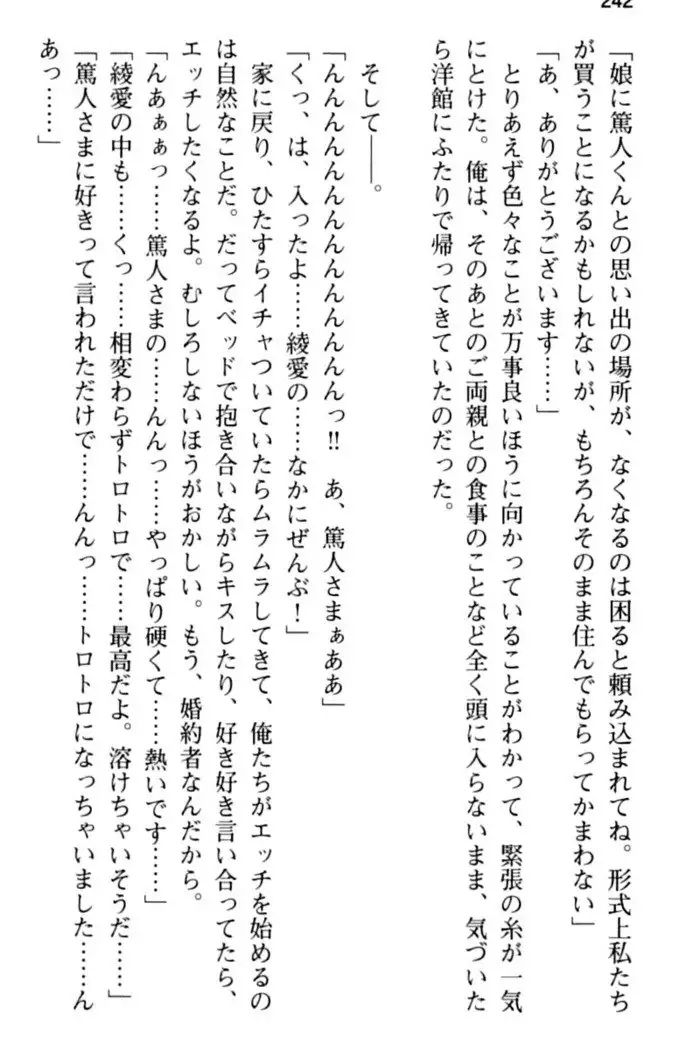 242
「娘に篤人くんとの思い出の場所が、なくなるのは困ると頼み込まれてね。形式上私たち
が買うことになるかもしれないが、もちろんそのまま住んでもらってかまわない」
「あ、ありがとうございます……」
とりあえず色々なことが万事良いほうに向かっていることがわかって、緊張の糸が一気
にとけた。俺は、そのあとのご両親との食事のことなど全く頭に入らないまま、気づいた
ら洋館にふたりで帰ってきていたのだった。
そして――。
「んんんんんんんんんんんんんんっ!! あ、篤人さまぁああ」
「くっ、は、入ったよ……綾愛の……なかにぜんぶ！」
家に戻り、ひたすらイチャついていたらムラムラしてきて、俺たちがエッチを始めるの
は自然なことだ。だってベッドで抱き合いながらキスしたり、好き好き言い合ってたら、
エッチしたくなるよ。むしろしないほうがおかしい。もう、婚約者なんだから。
「んあぁぁっ……篤人さまの……んんっ……やっぱり硬くて……熱いです……」
「綾愛の中も……くっ……相変わらずトロトロで……最高だよ。溶けちゃいそうだ……」
「篤人さまに好きって言われただけで……んんっ……トロトロになっちゃいました……ん
あっ……」